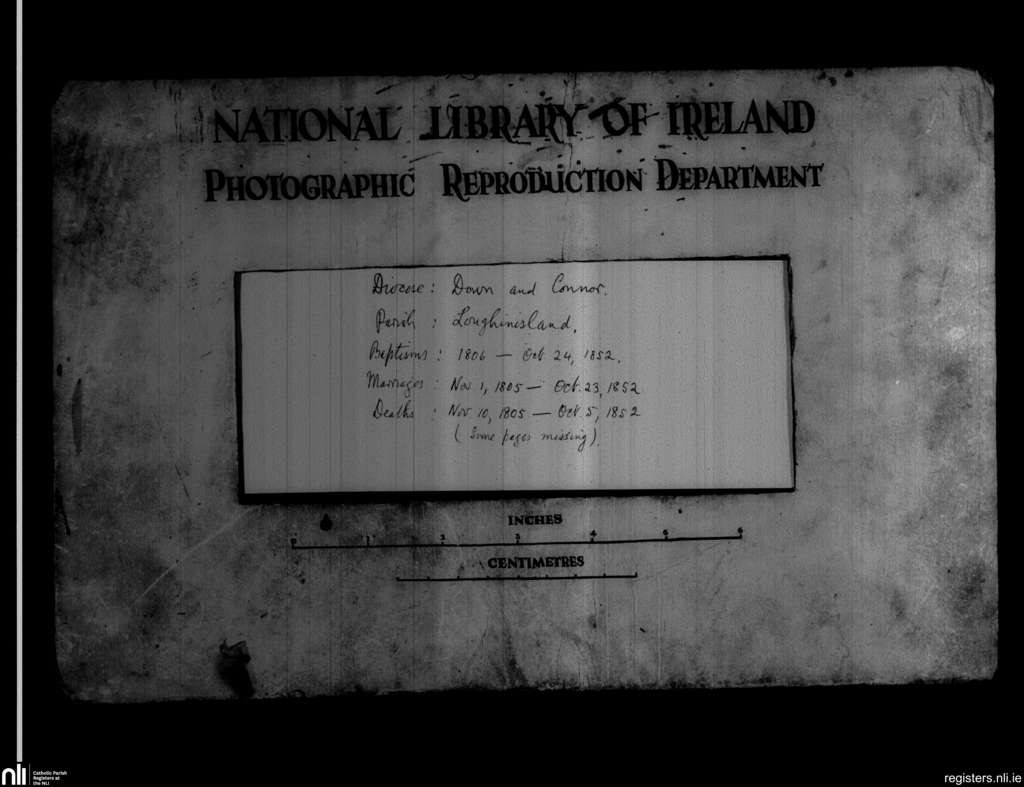 NATIONAL LIBRARY OF IRELAND
PHOTOGRAPHIC REPRODUCTION DEPARTMENT
Diocese : Down and Connor.
Parish : Loughinisland.
Baptisms : 1806 — Oct 24, 1852.
Marriages : Nov. 1, 1805 — Oct. 23, 1852
Deaths : Nov. 10, 1805 — Oct. 5, 1852
(Some pages missing).
INCHES
0 1 2 3 4 5 6
CENTIMETRES
nli Catholic Parish
Registers at
the NLI
registers.nli.ie